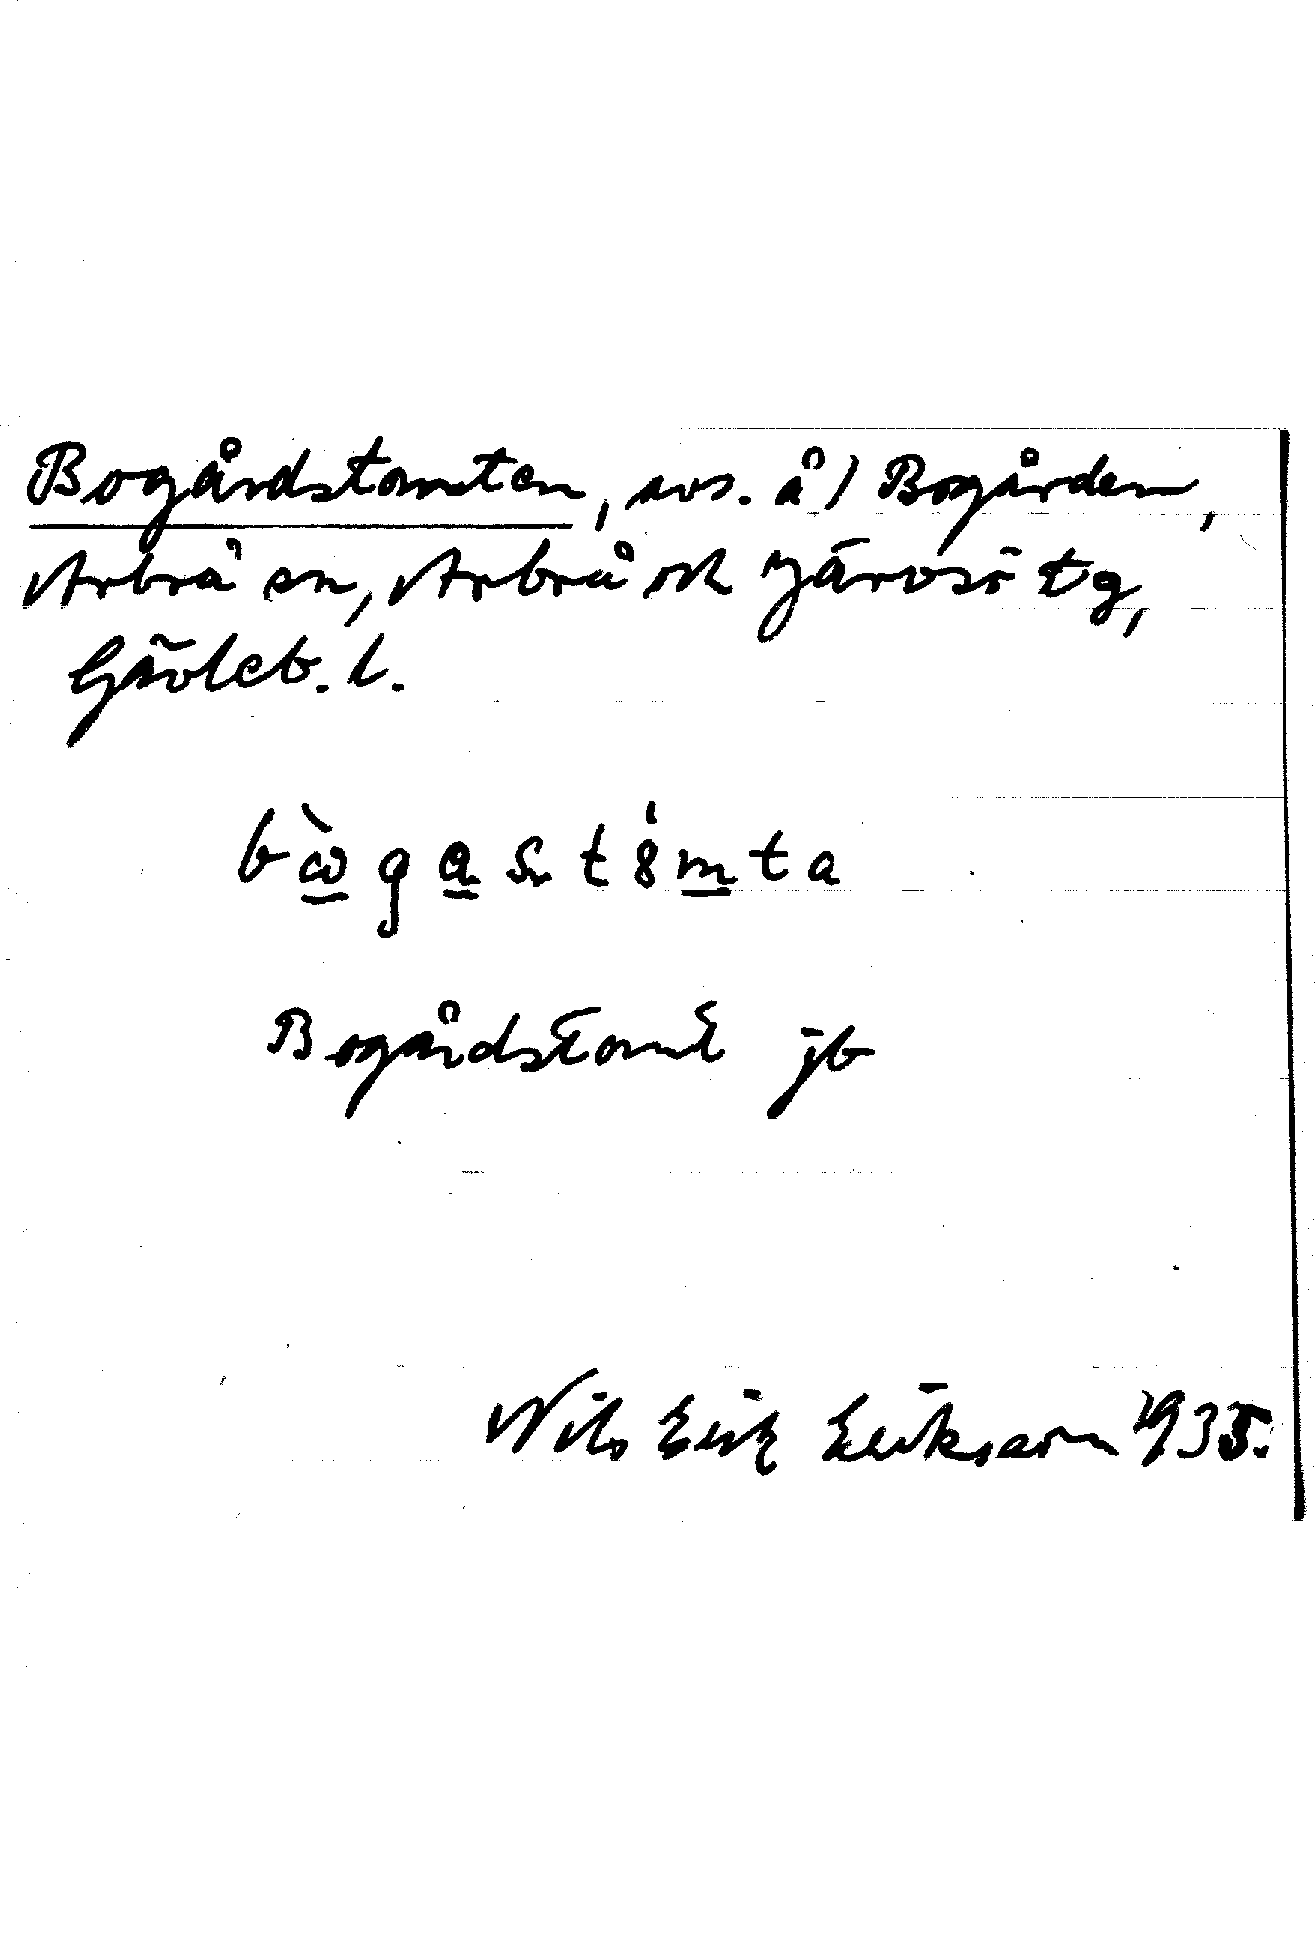 Bogårdstomten, avs. å) Bogården,
Arbrå sn, Arbrå och Järvsö tg,
Gävleb. l.
bὼgastö́mta
Bogårdstomt jb
Nils Erik Eriksson 1935.